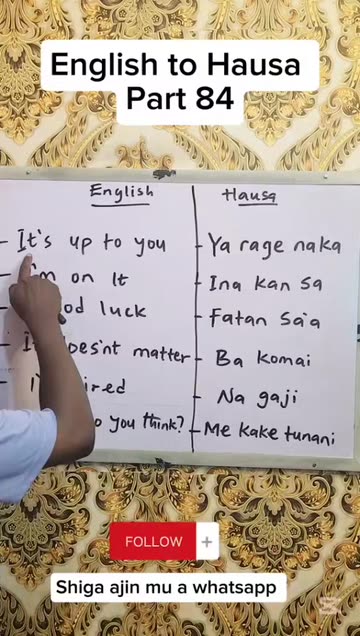 English to Hausa
Part 84
English Hausa
- It's up to you - Ya rage naka
- on It - Ina kan sa
luck - Fatan Sa'a
- matter - Ba komai
- Na gaji
- you think? - Me kake tunani
FOLLOW +
Shiga ajin mu a whatsapp